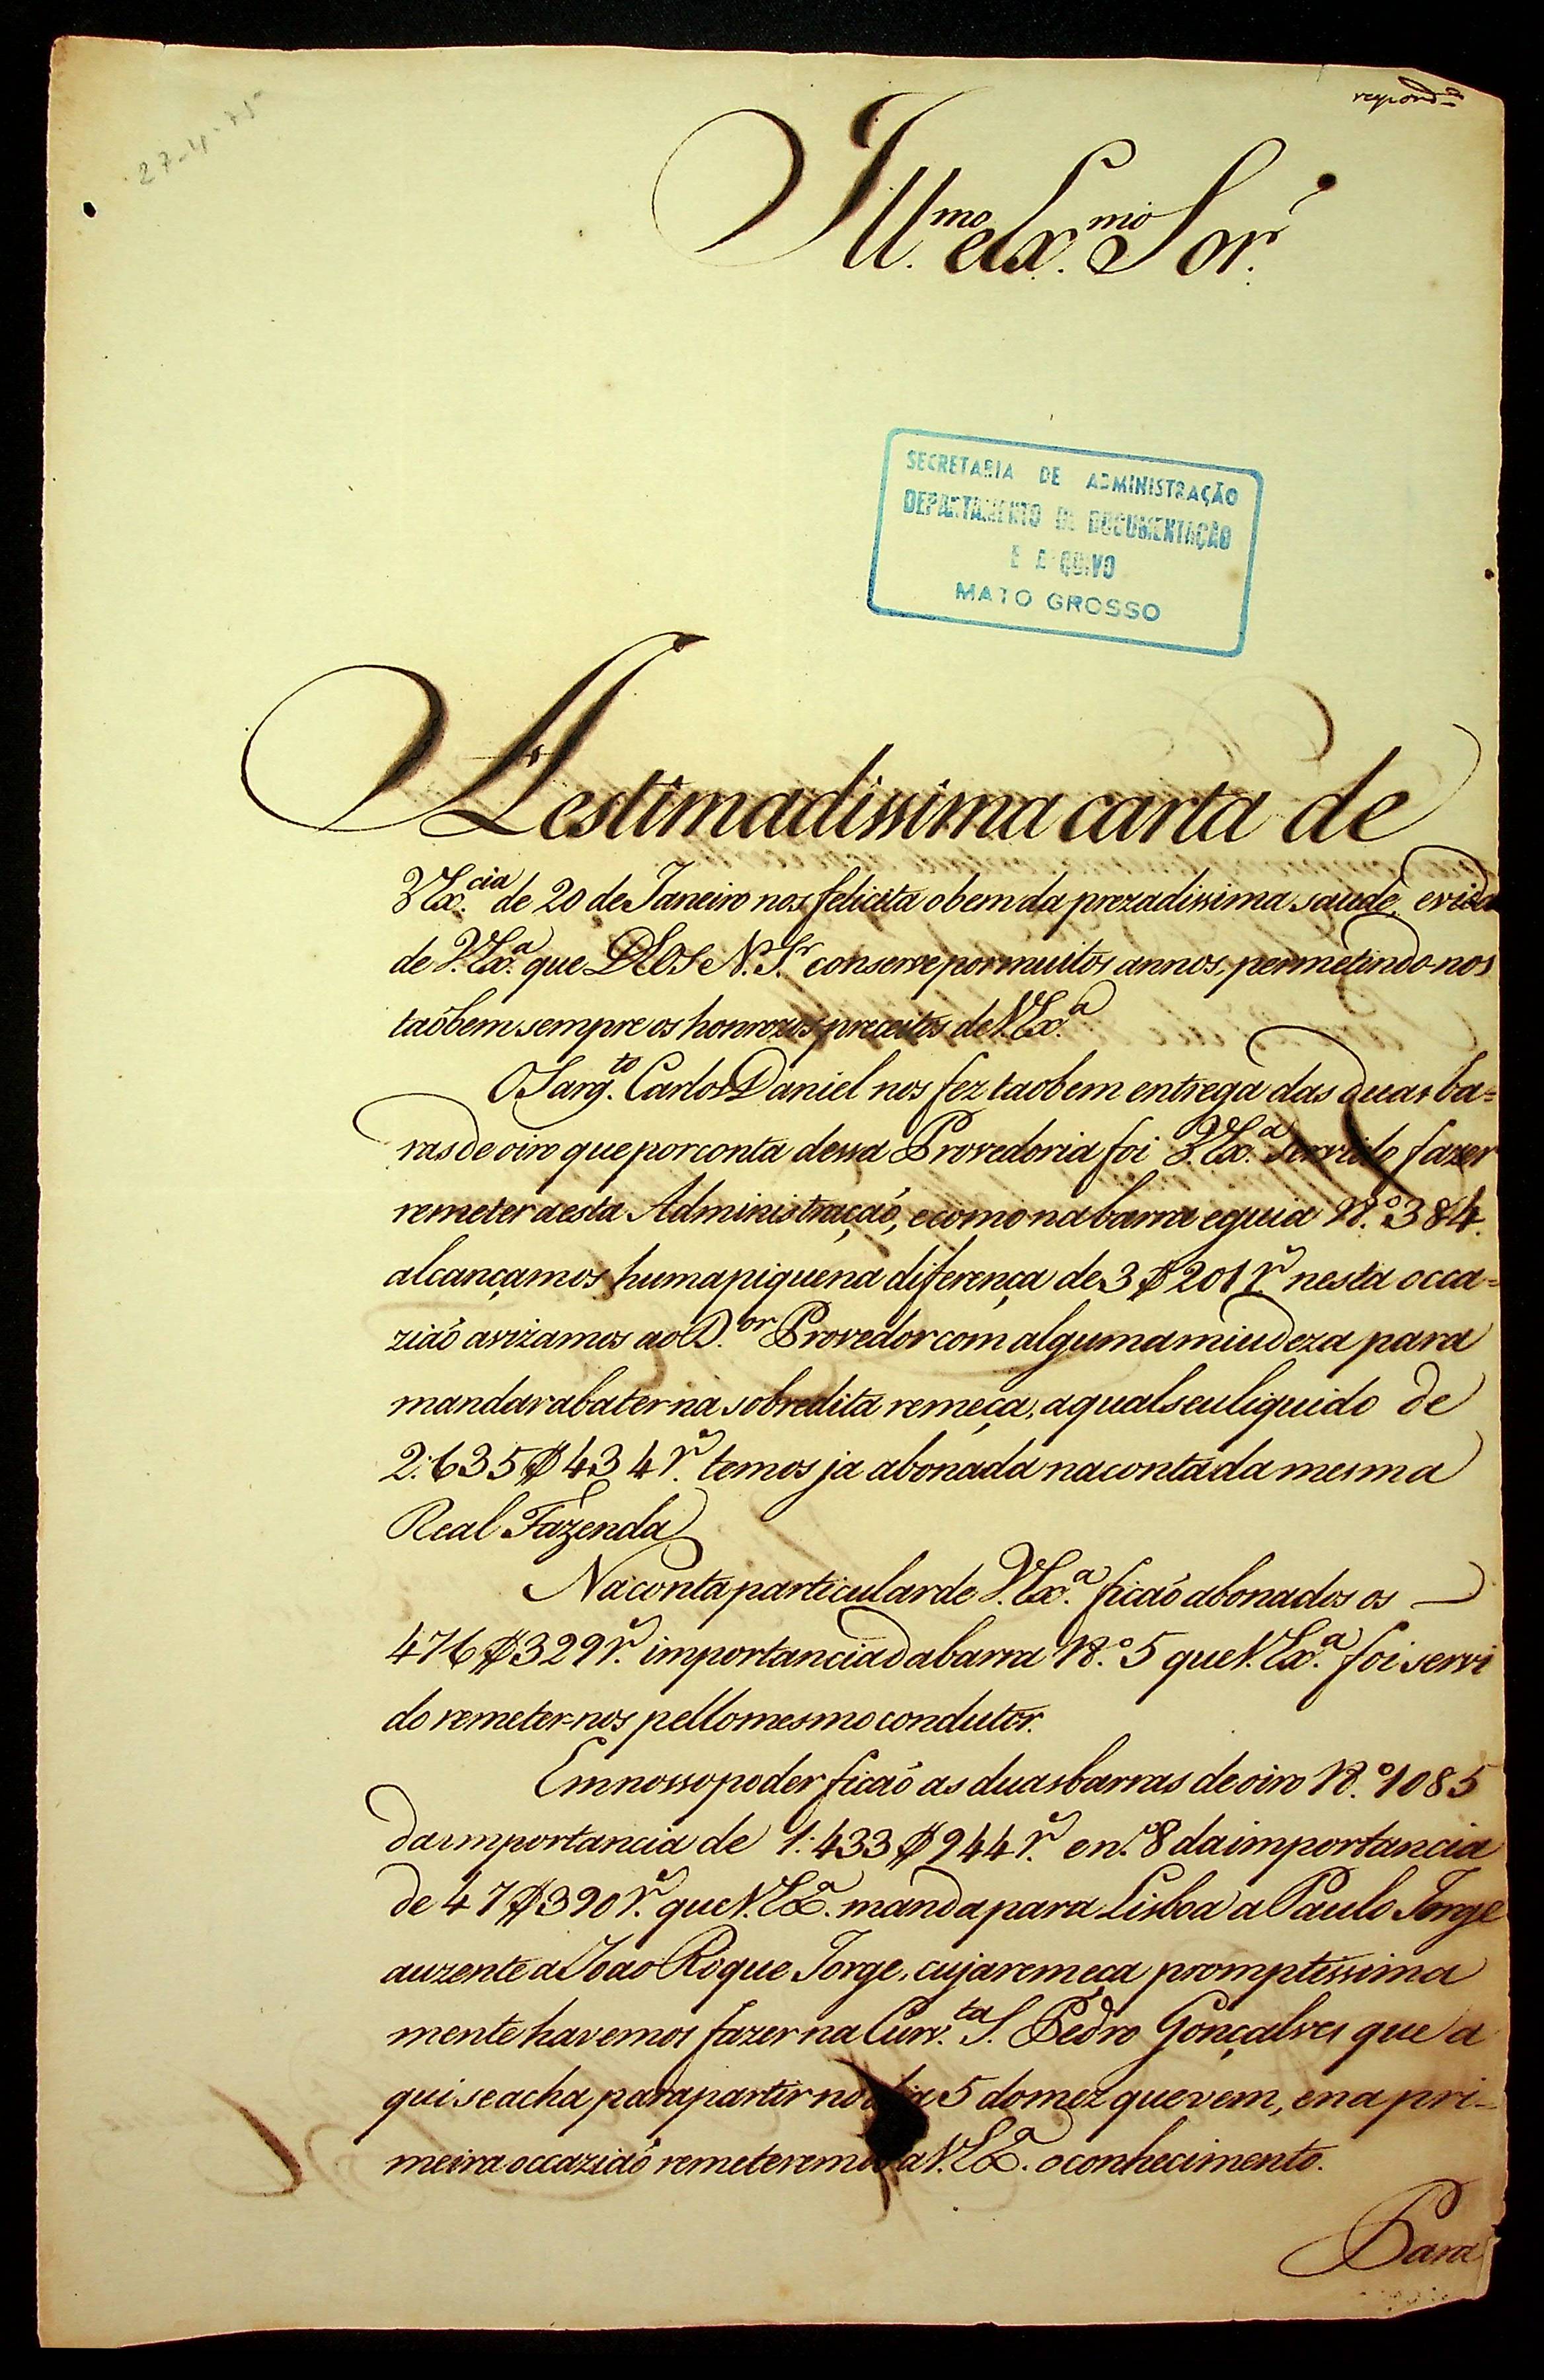 respond.o
27-4-75
Ill.mo e Ex.mo Sor.
SECRETARIA DE ADMINISTRAÇÃO
DEPARTAMENTO DE DOCUMENTAÇÃO
E ARQUIVO
MATO GROSSO
A estimadissima carta de
V Ex.cia de 20 de Janeiro nos felicita o bem da prezadissima saude, e vida
de V. Ex.a que DEOS N. Sr. conserve por muitos annos, permetindo-nos
taõbem sempre os honrozos preceitos de V. Ex.a
O Sarg.to Carlos Daniel nos fez taobem entrega das duas ba=
ras de oiro que por conta dessa Provedoria foi V. Ex.a servido fazer
remeter a esta Administraçaõ, e como na barra e guia N.o 384.
alcançamos huma piquena diferença de 3$201 r.s nesta occa=
ziaõ avizamos ao D.or Provedor com alguma miudeza para
mandar abater na sobredita remeça, a qual seu liquido de
2:635$434 r.s temos ja abonada na conta da mesma
Real Fazenda
Na conta particular de V. Ex.a ficaõ abonados os
476$329 r.s importancia da barra N.o 5 que V. Ex.a foi servi
do remeter=nos pello mesmo condutor.
Em nosso poder ficaõ as duas barras de oiro N.o 1085
da importancia de 1:433$944 r.s e n.o 8 da importancia
de 47$390 r.s que V. Ex.a manda para Lisboa a Paulo Jorge
auzente a Joao Roque Jorge, cuja remeça promptissima
mente havemos fazer na Curv.ta S. Pedro Gonçalves que a
qui se acha para partir no dia 5 do mez que vem, e na pri-
meira occaziaõ remeteremos a V. Ex.a o conhecimento.
Para